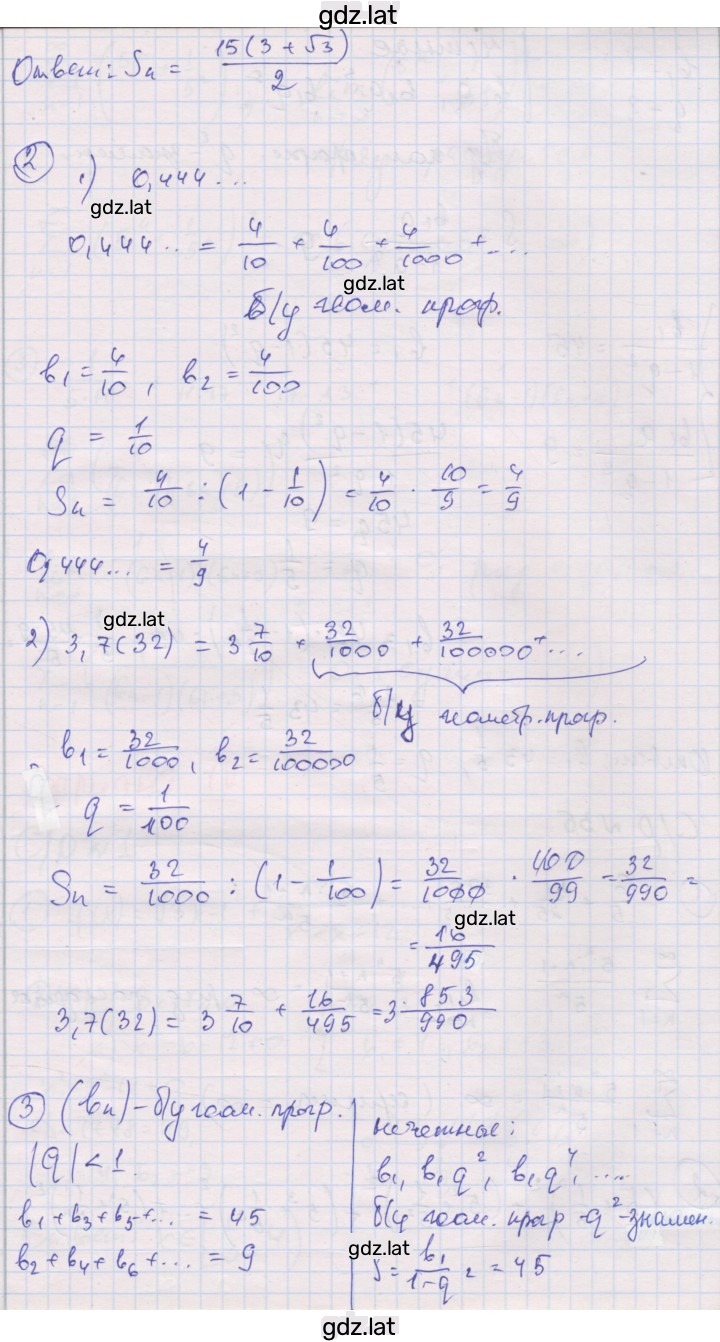 gdz.lat
Ответ: Sн = 15(3 + √3)/2
② 1) 0,444...
gdz.lat
0,444.. = 4/10 + 4/100 + 4/1000 + ...
gdz.lat
б/у геом. прогр.
b₁ = 4/10, b₂ = 4/100
q = 1/10
Sн = 4/10 : (1 - 1/10) = 4/10 · 10/9 = 4/9
0,444... = 4/9
gdz.lat
2) 3,7(32) = 3 7/10 + 32/1000 + 32/100000 + ...
б/у геометр. прогр.
b₁ = 32/1000, b₂ = 32/100000
q = 1/100
Sн = 32/1000 : (1 - 1/100) = 32/1000 · 100/99 = 32/990 =
gdz.lat
= 16/495
3,7(32) = 3 7/10 + 16/495 = 3 853/990
③ (bн) - б/у геом. прогр.
|q| < 1
b₁ + b₃ + b₅ + ... = 45
b₂ + b₄ + b₆ + ... = 9
нечетные:
b₁, b₁q², b₁q⁴, ....
б/у геом. прогр - q² - знамен.
gdz.lat
S = b₁/1-q² = 45
gdz.lat